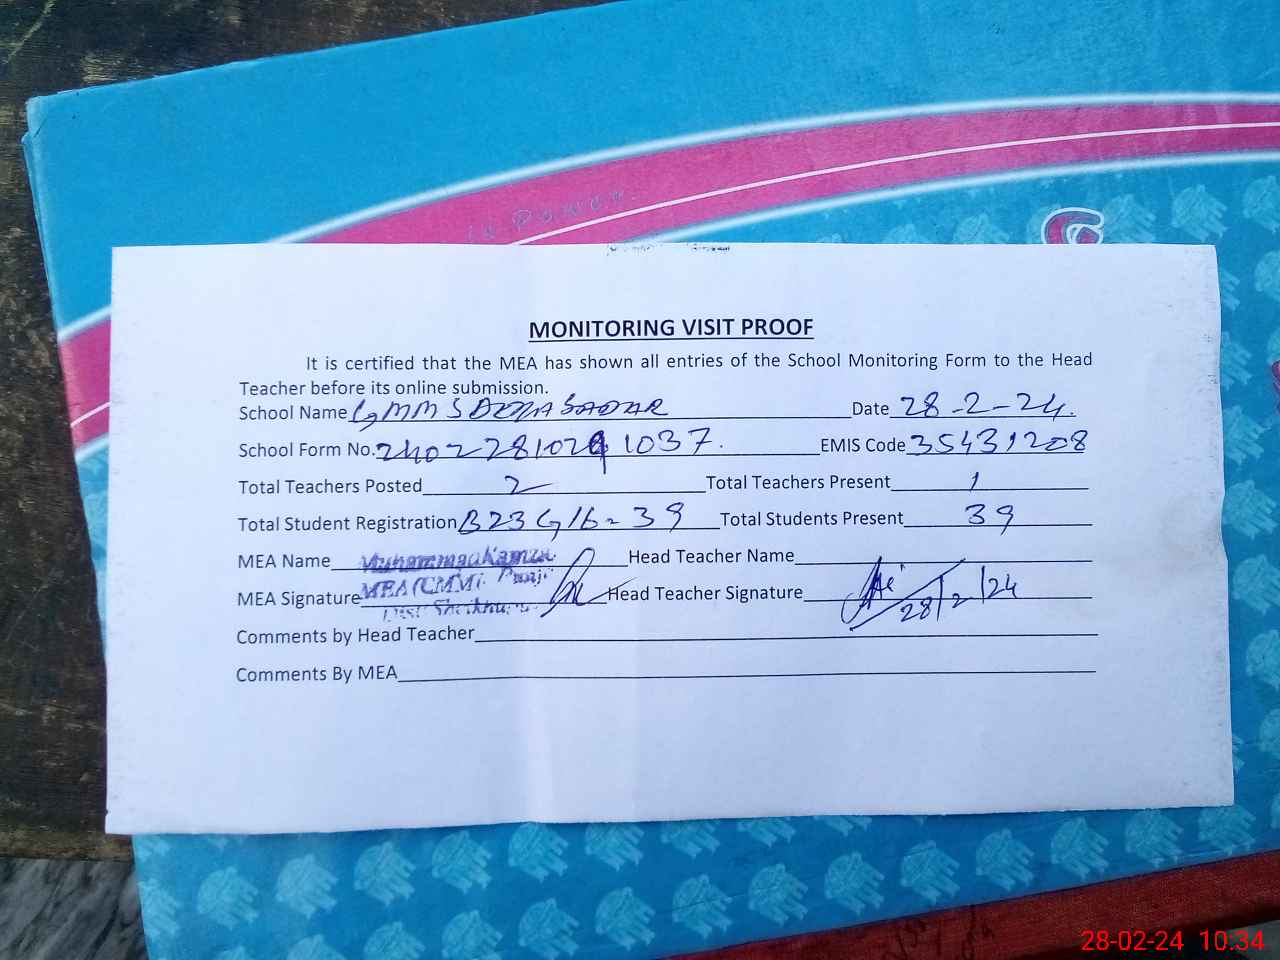 is Power.
MONITORING VISIT PROOF
It is certified that the MEA has shown all entries of the School Monitoring Form to the Head
Teacher before its online submission.
School Name GMMS DERA Date 28-2-24.
School Form No. EMIS Code 35431208
Total Teachers Posted 2 Total Teachers Present 1
Total Student Registration B23 G16=39 Total Students Present 39
MEA Name Muhammad Head Teacher Name
MEA Signature MEA (CMMF Punjab Head Teacher Signature 28/2/24
Comments by Head Teacher
Comments By MEA
28-02-24 10:34